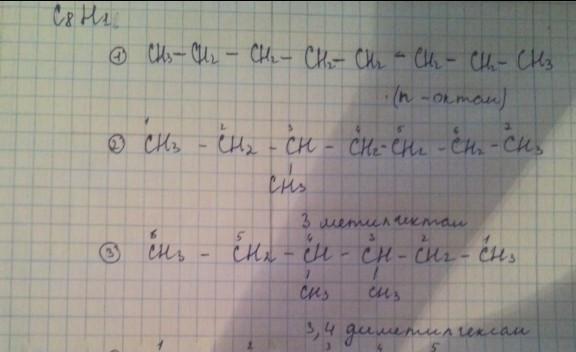 C8H1
① CH3 – CH2 – CH2 – CH2 – CH2 – CH2 – CH2 – CH3
(н – октан)
1 2 3 4 5 6 7
② CH3 – CH2 – CH – CH2 – CH2 – CH2 – CH3
CH3
3 метилгептан
6 5 4 3 2 1
③ CH3 – CH2 – CH – CH – CH2 – CH3
CH3 CH3
3,4 диметилгексан
1 2 3 4 5